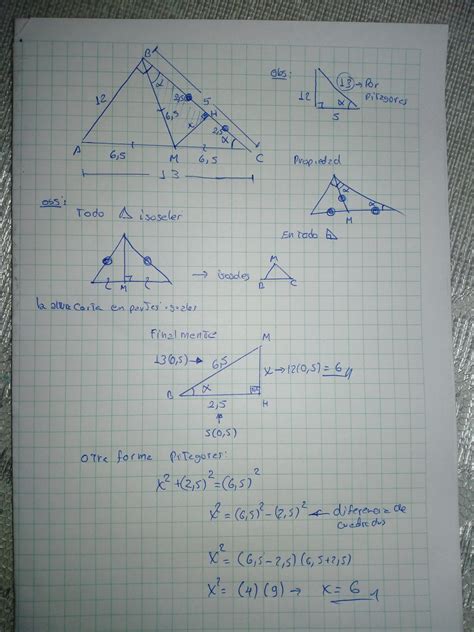 B
obs:
13 → Por
Pitagores
12
α
5
12
α
2,5
5
6,5
H
x
2,5
α
A
6,5
M
6,5
C
13
Propiedad
α
α
M
En todo
obs:
Todo △ isoseler
L
M
L
→
M
B
C
la altura corta en partes iguales
Finalmente
13(0,5) →
6,5
M
x → 12(0,5) = 6
B
α
2,5
H
↑
5(0,5)
otra forma Pitagores:
x² + (2,5)² = (6,5)²
x² = (6,5)² - (2,5)² ← diferencia de
cuadrados
x² = (6,5 - 2,5) (6,5 + 2,5)
x² = (4) (9) → x = 6